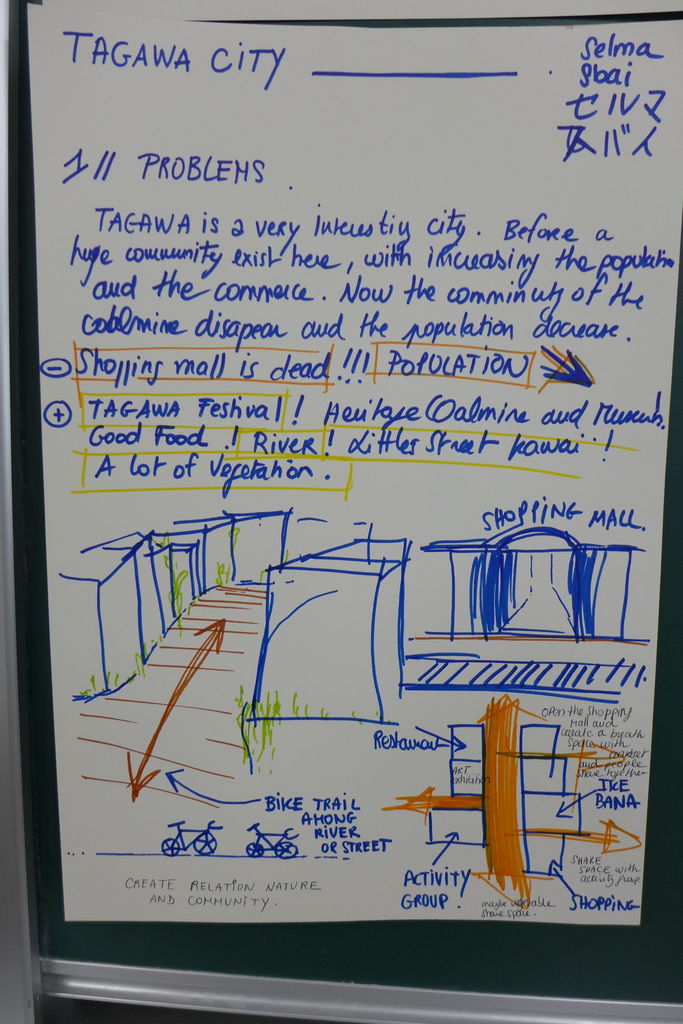 TAGAWA CITY
Selma
Sbai
セルマ
スバイ
1// PROBLEMS.
TAGAWA is a very interesting city. Before a
huge community exist here, with increasing the population
and the commerce. Now the comminuty of the
coalmine disapear and the population decrease.
⊖ Shopping mall is dead !!! POPULATION
⊕ TAGAWA Festival! Heritage Coalmine and Museum.
Good Food.! RIVER! Littles Street kawaii!
A lot of Vegetation.
SHOPPING MALL.
OPEN the Shopping
Mall and
create a breath
space with
market
and people
share together
Restaurant
ART
exhibition
IKE
BANA
BIKE TRAIL
AMONG
RIVER
OR STREET
SHARE
SPACE with
activity group
ACTIVITY
GROUP.
SHOPPING
maybe vegetable
share space.
CREATE RELATION NATURE
AND COMMUNITY.